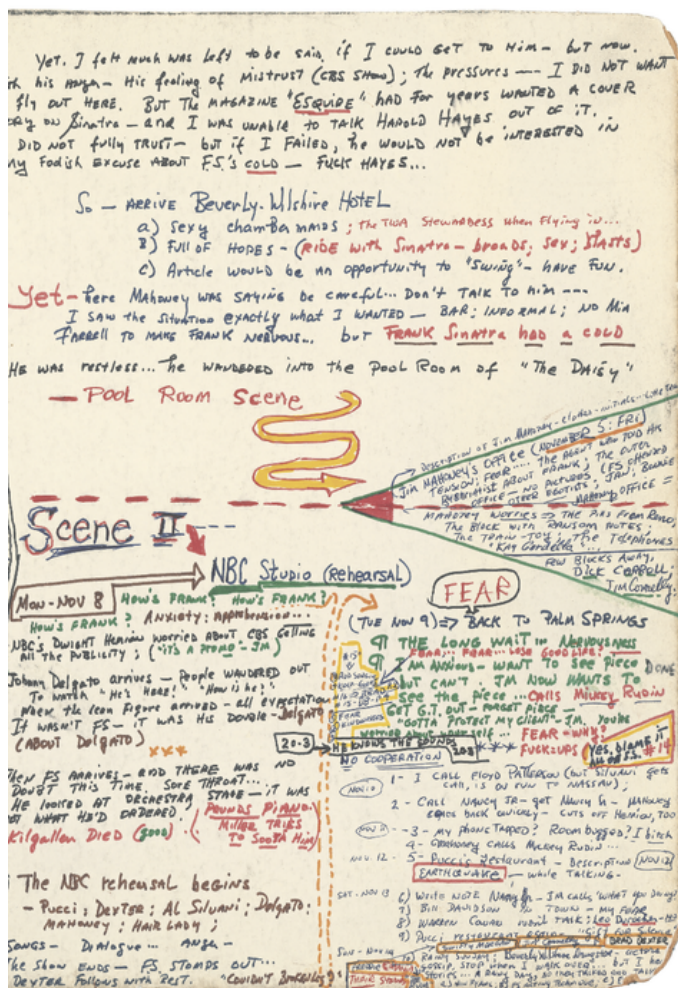 Yet. I felt much was left to be said, if I could get to him - but now.
h his anger - His feeling of Mistrust (CBS Show); the pressures --- I DID NOT WANT
fly out here. But the MAGAZINE "ESQUIRE" had for years wanted a cover
ory on Sinatra - and I was unable to talk Harold Hayes out of it.
DID not fully trust - but if I failed, he would not be interested in
my Fodish Excuse About F.S.'s COLD - FUCK HAYES...
So - ARRIVE Beverly-Wilshire HOTEL
a) Sexy chambermaids; the TWA Stewardess when flying in...
B) Full of HOPES - (RIDE with Sinatra - broads; sex; blasts)
c) Article would be an opportunity to "swing" - have fun.
Yet - here Mahoney was saying be careful... Don't talk to him ---
I saw the situation exactly what I wanted - BAR; INFORMAL; NO Mia
Farrell to make Frank nervous... but FRANK Sinatra had a COLD
HE WAS RESTLESS... he wandered into the Pool Room of "The Daisy"
- Pool Room Scene
Description of Jim Mahoney - clothes - initials
Jim Mahoney's Office (NOVEMBER 5: FRI)
TENSION; FEAR.... The AGENT who told his
about Frank; The outer
office - no pictures (FS offended
other egotists; JAN; Bonnie
Mahoney office =
Mahoney worries => The Pics from
The Block with Ransom Notes;
The Train-Toy; The Telephones
"Kay Gardella"...
Few Blocks Away,
Dick Carroll;
Jim Connelly.
Scene II
NBC Studio (Rehearsal)
Mon-Nov 8
How's Frank? How's Frank?
How's Frank? Anxiety: apprehension...
NBC's Dwight Hemion worried about CBS getting
all the publicity; ("it's a promo" - JM)
Johnny Delgato arrives - People wandered out
to watch "He's Here!" "How is he?"
when the lean figure arrived - all expectation
It wasn't FS - it was his Double - Delgato
(About Delgato)
xxx
hen FS arrives - and there was no
doubt this time. Sore throat...
He looked at orchestra stage - it was
ot what he'd ordered.
Kilgallen Died (good)
(Pounds Piano.
Miller tries
to sooth him)
The NBC rehearsal begins
- Pucci; Dexter; Al Silvani; Delgato;
Mahoney; Hair Lady;
Songs - Dialogue... Anger -
The Show Ends - FS stomps out...
Dexter Follows with Rest.
FEAR
(Tue Nov 9) => Back to Palm Springs
¶ The Long Wait in Nervousness
FEAR... FEAR... Lose good life?
¶ I am anxious - want to see piece
but can't. JM now wants to
see the piece... Calls Mickey Rudin
Got G.T. out - forget piece -
"Gotta protect my client" - JM. You're
worried about yourself...
FEAR - WHY?
FUCK=UPS
Yes, blame it
#14
20-3
He knows the sounds
NO COOPERATION
1- I call Floyd Patterson (but Silvani gets
call, is on run to Nassau);
2 - Call Nancy Jr - get Nancy Sr - Mahoney
calls back quickly - cuts off Hemion, too
-3 - My phone tapped? Room bugged? I bitch
4 - Mahoney calls Mickey Rudin...
Nov. 12 - 5 - Pucci's Restaurant - Description Nov 12
EARTHQUAKE - while talking -
Sat - Nov 13
6) Write note Nancy Jr - JM calls "what you doing?
7) Bill Davidson in town - my fear
8) Warren Cowan Talk: Leo Durocher
9) Pucci restaurant again "Gift for Silence"
Brad Dexter
10) Rainy Sunday: Beverly Wilshire Drugstore
Gossip, stop when I walk over... but I